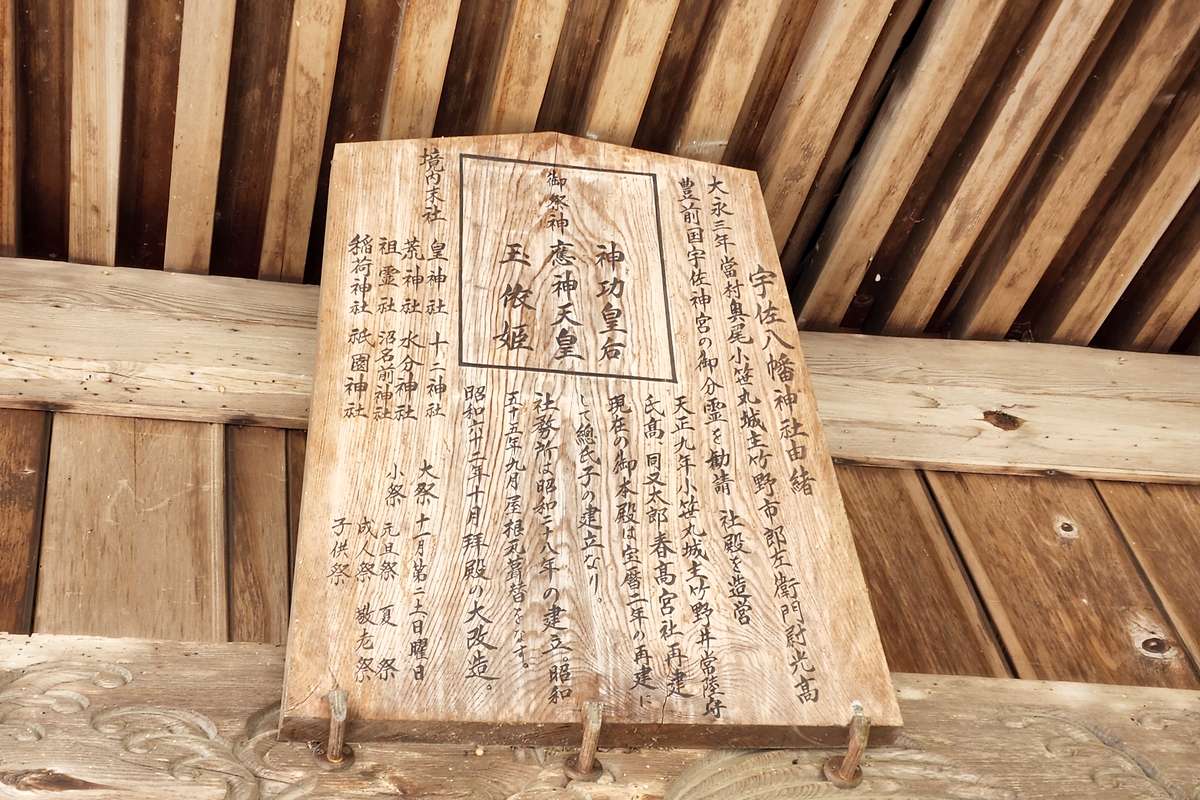 宇佐八幡神社由緒
大永三年當村奥尾小笹丸城主竹野市郎左衛門尉光高
豊前国宇佐神宮の御分霊を勧請 社殿を造営
天正九年小笹丸城主竹野井常陸守
氏高 同又太郎春高宮社再建
現在の御本殿は宝暦二年の再建に
して總氏子の建立なり。
社務所は昭和二十八年の建立。昭和
五十五年九月屋根瓦葺替をなす。
昭和六十二年十月拝殿の大改造。
御祭神
神功皇后
應神天皇
玉依姫
境内末社
皇神社 十二神社
荒神社 水分神社
祖霊社 沼名前神社
稲荷神社 祇園神社
大祭 十一月第二土日曜日
小祭 元旦祭 夏祭
成人祭 敬老祭
子供祭